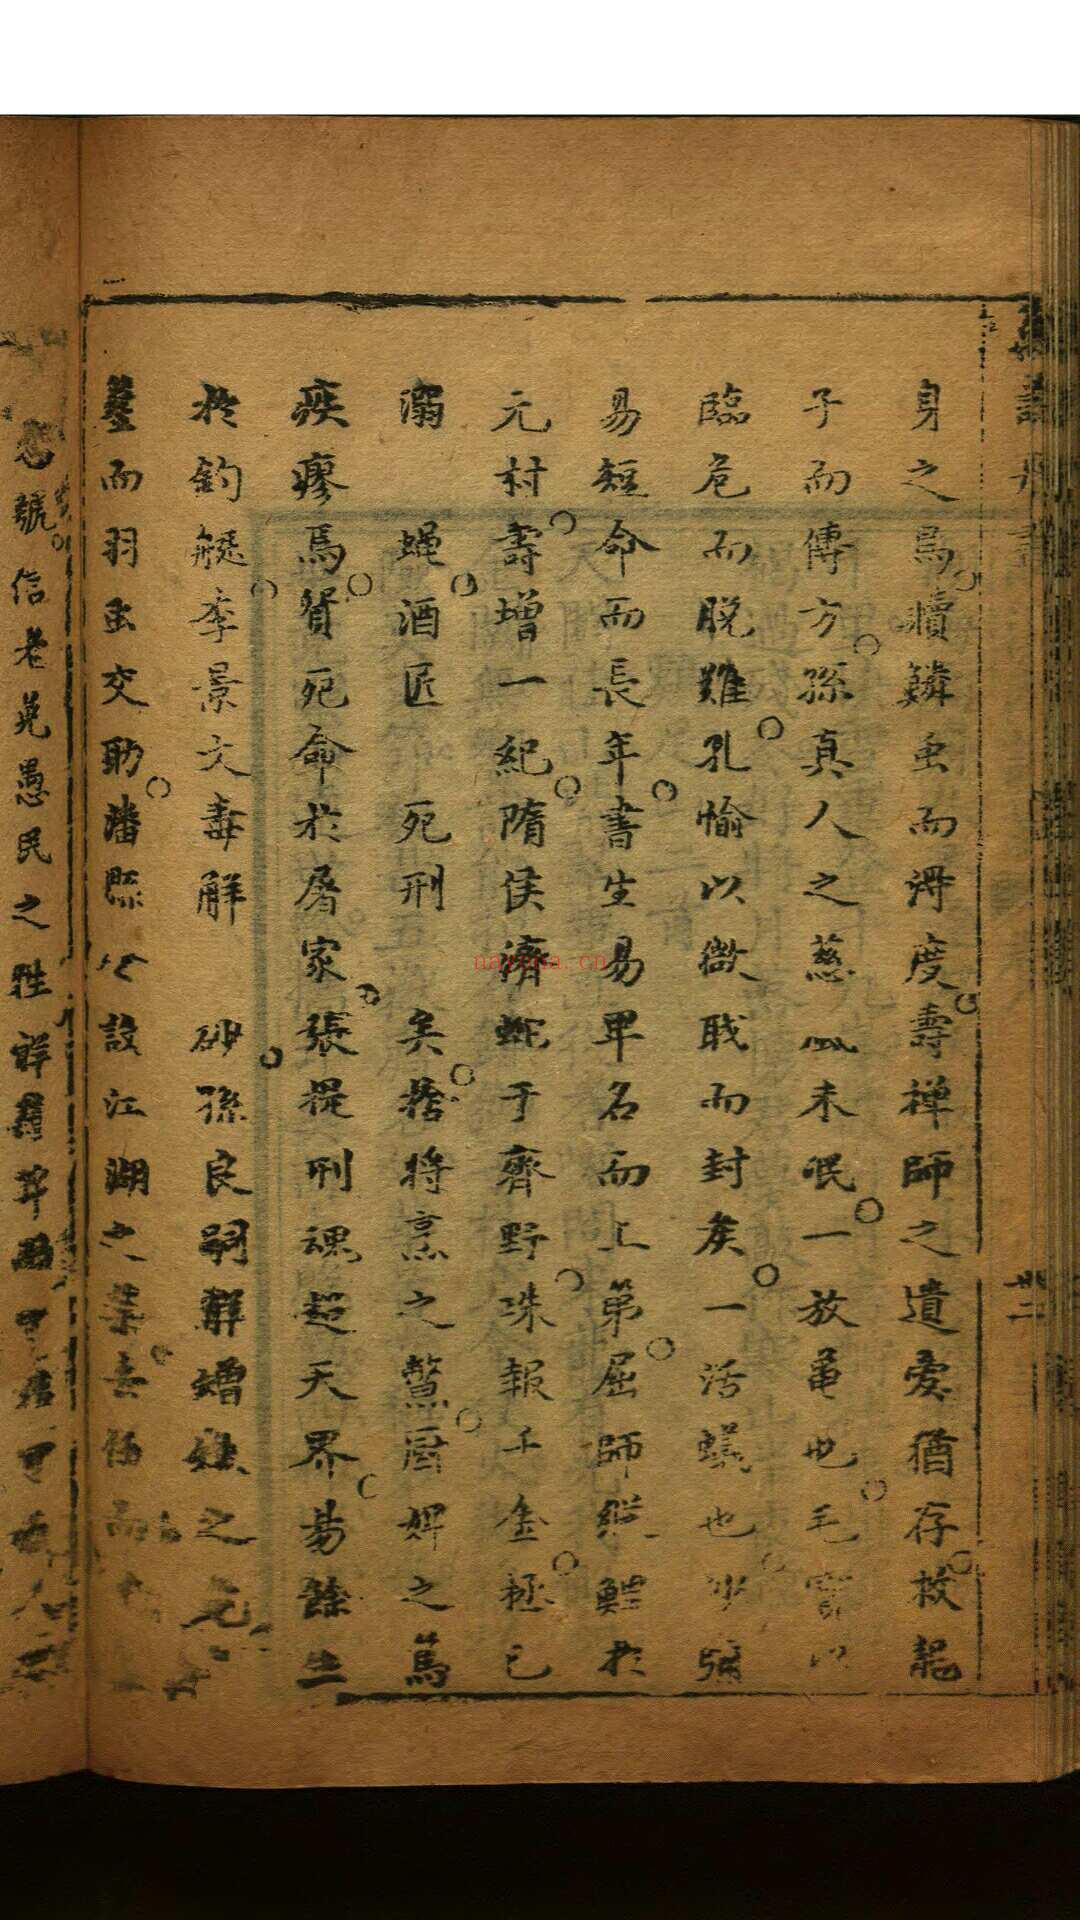 身之爲贖鱗虫而得度壽禅師之遺愛猶存救龍
子而傳方孫真人之慈風未泯一放龜也毛寶以
臨危而脱難孔愉以微戝而封矦一活蟻也沙彌
易短命而長年書生易卑名而上第屈師縱鱓於
元村壽增一紀隋侯濟蛇于齊野珠報千金拯已
溺 蝇酒匠 死刑 矣捨将烹之鱉厨婢之篤
疾瘳焉貿死命於屠家張提刑魂超天界易餘生
於釣艇李景文毒解 砂孫良嗣解矰繳之
塟而羽虫交助潘縣 設江湖之禁去任而
號信老免愚民之牲
廿二
nnyuna.cn